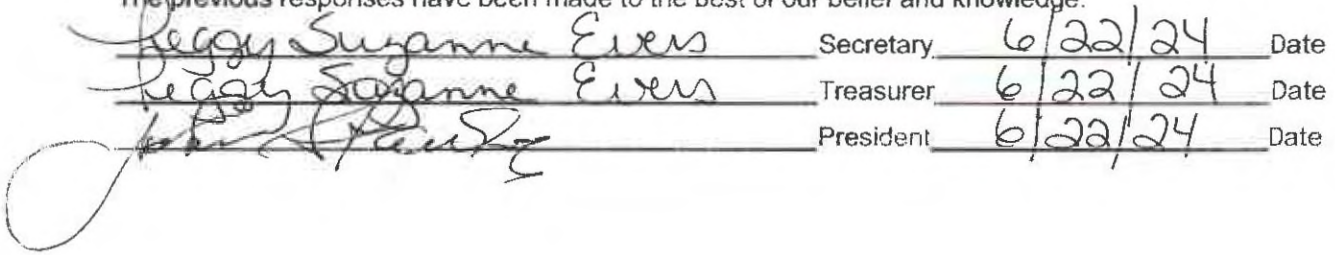 The previous responses have been made to the best of our belief and knowledge.
Peggy Suzanne Evers Secretary 6/22/24 Date
Peggy Suzanne Evers Treasurer 6/22/24 Date
John President 6/22/24 Date